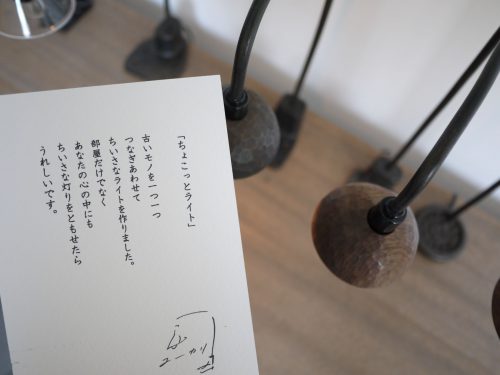 「ちょこっとライト」
古いモノを一つ一つ
つなぎあわせて
ちいさなライトを作りました。
部屋だけでなく
あなたの心の中にも
ちいさな灯りをともせたら
うれしいです。
ユーカリ